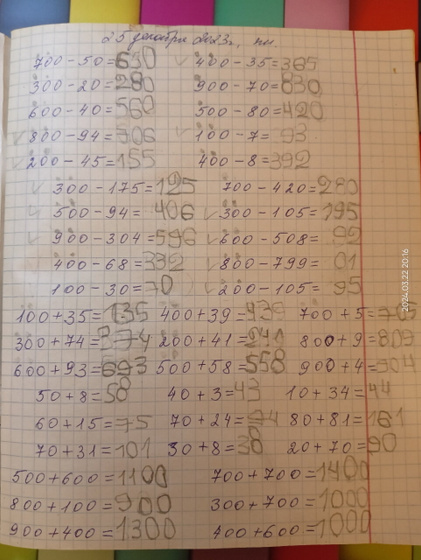 25 декабря 2023г, пн.
700-50=650 400-35=365
300-20=280 900-70=830
600-40=560 500-80=420
800-94=706 100-7=93
200-45=155 400-8=392
300-175=125 700-420=280
500-94=406 300-105=195
900-304=596 600-508=92
400-68=332 800-799=01
100-30=70 200-105=95
100+35=135 400+39=439 700+5=705
300+74=374 200+41=241 800+9=809
600+93=693 500+58=558 900+4=904
50+8=58 40+3=43 10+34=44
60+15=75 70+24=94 80+81=161
70+31=101 30+8=38 20+70=90
500+600=1100 700+700=1400
800+100=900 300+700=1000
900+400=1300 400+600=1000
2024.03.22 20:16